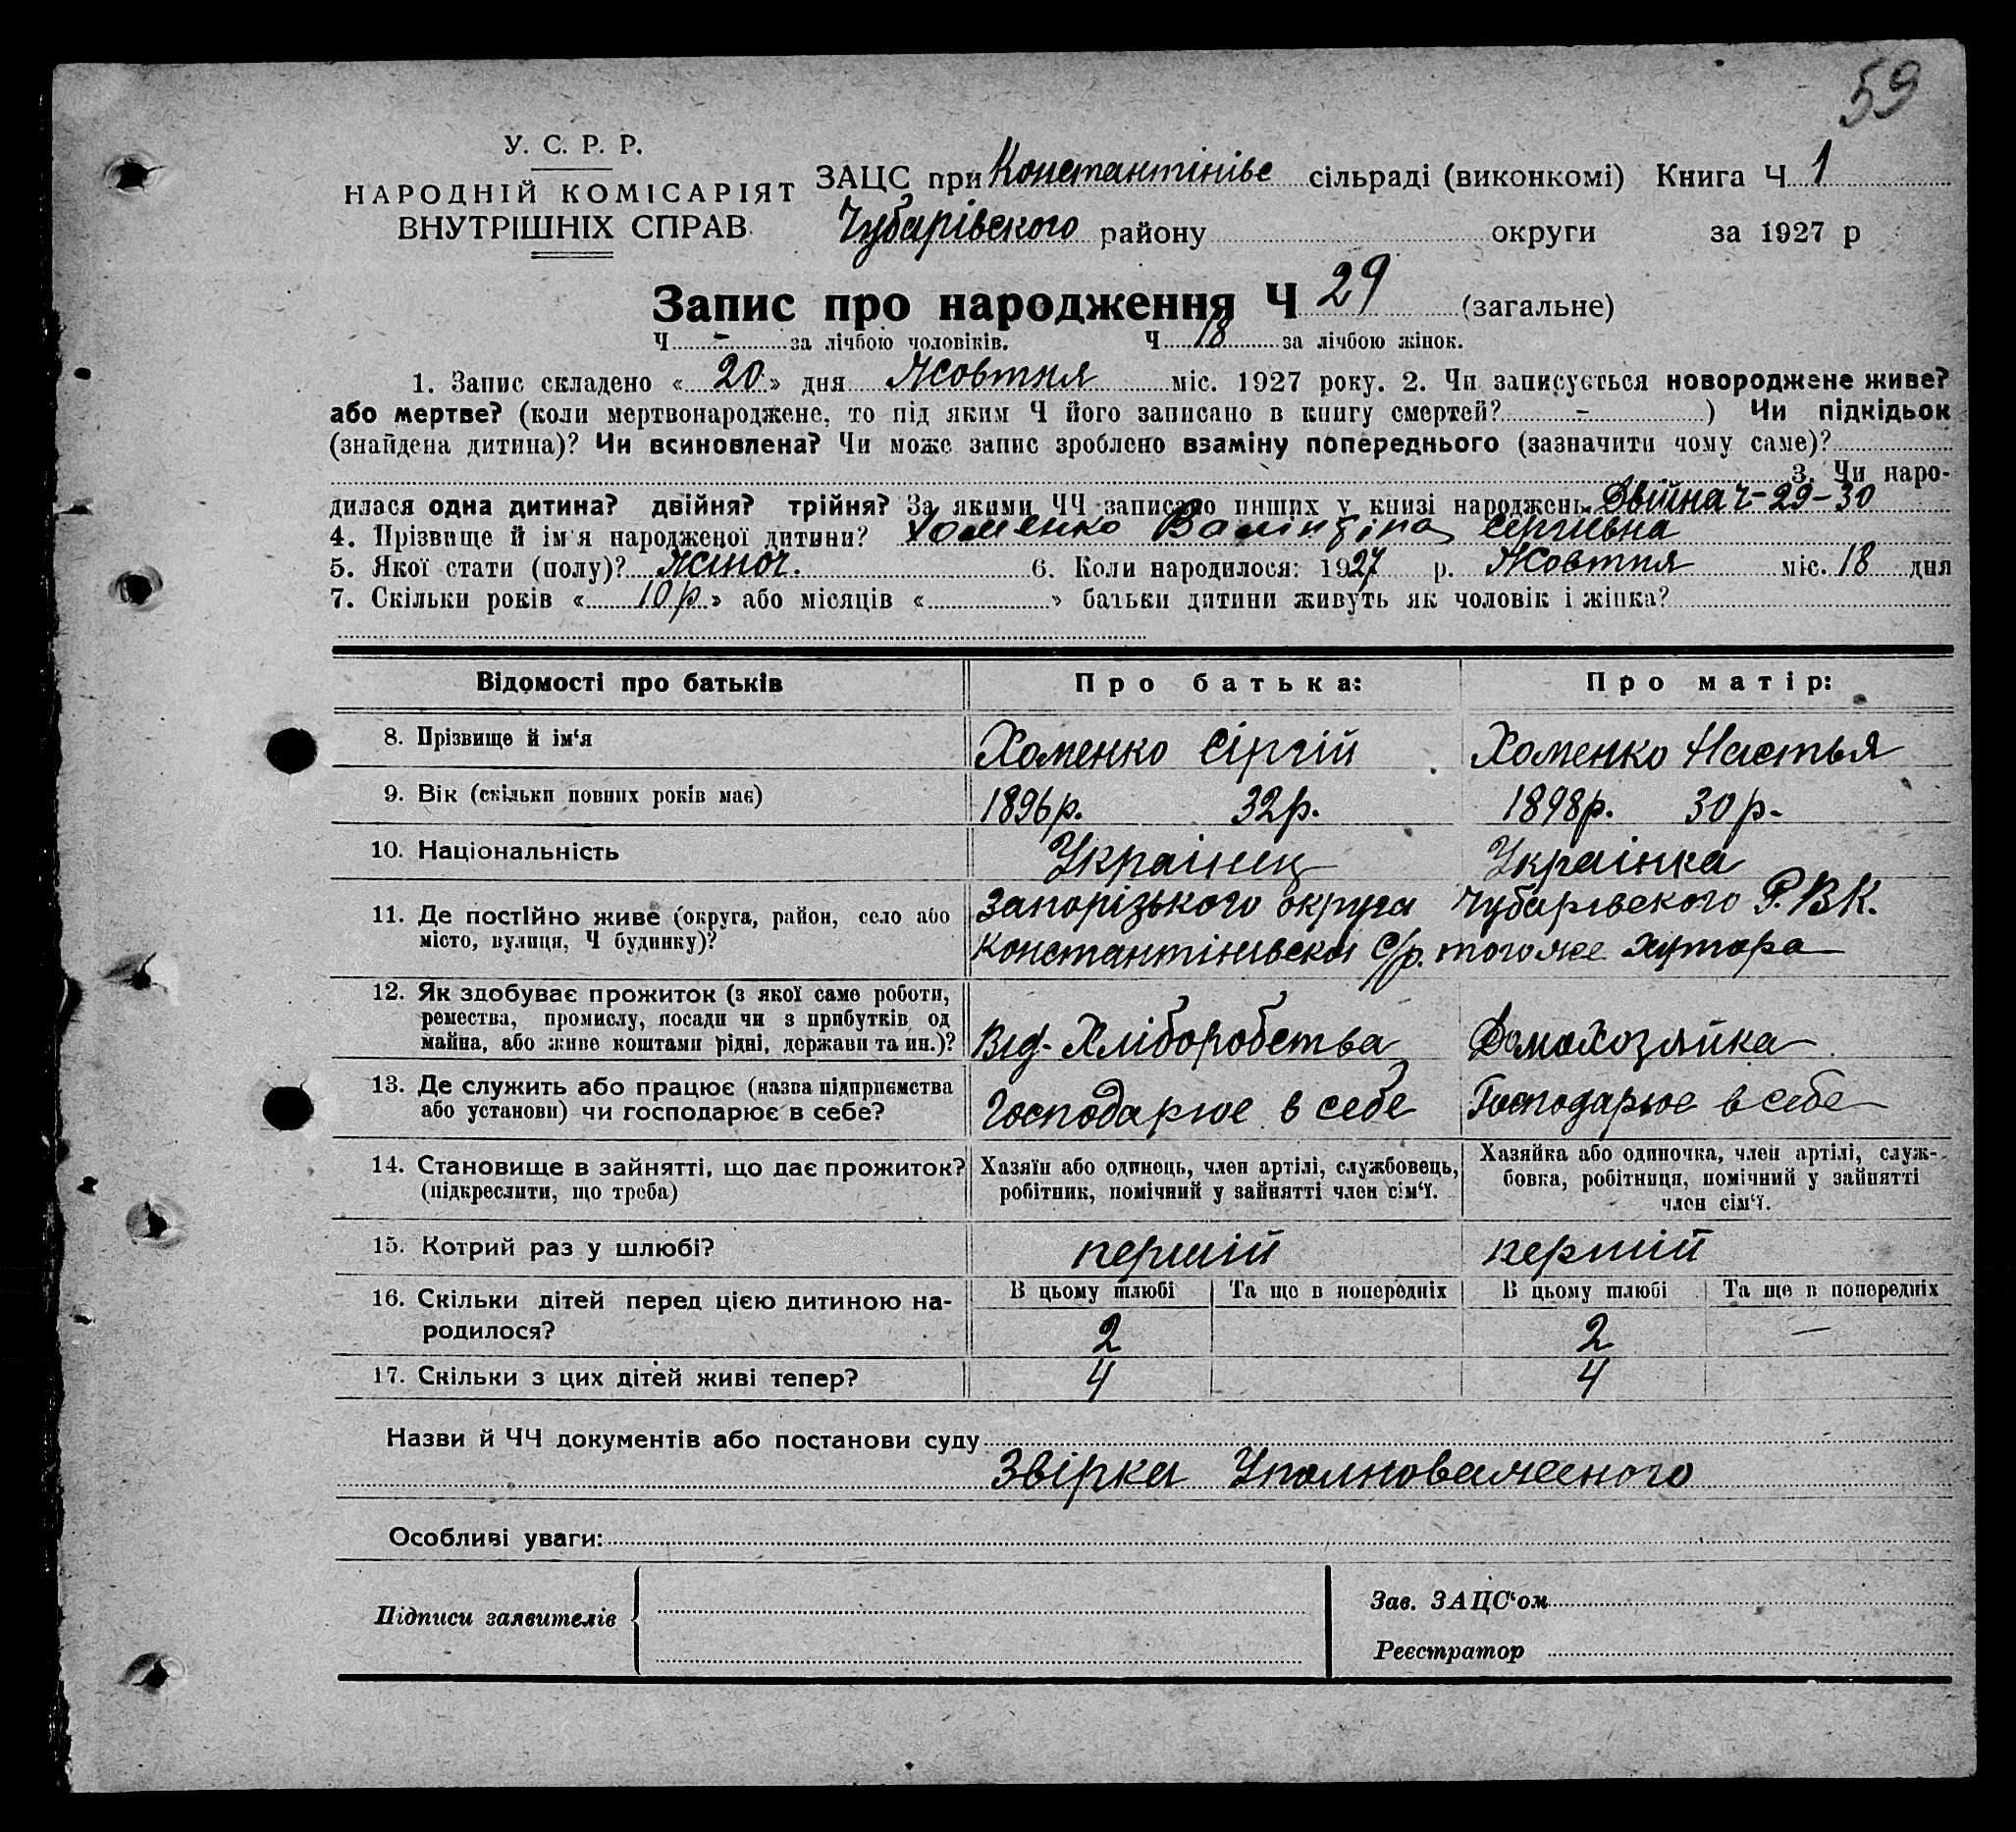 59
У. С. Р. Р.
НАРОДНІЙ КОМІСАРІЯТ
ВНУТРІШНІХ СПРАВ
ЗАЦС при Константінівс сільраді (виконкомі) Книга Ч 1
Чубарівского району округи за 1927 р
Запис про народження Ч 29 (загальне)
Ч - за лічбою чоловіків. Ч 18 за лічбою жінок.
1. Запис складено « 20 » дня Жовтня міс. 1927 року. 2. Чи записується новороджене живе?
або мертве? (коли мертвонароджене, то під яким Ч його записано в книгу смертей? - ) Чи підкідьок
(знайдена дитина)? Чи всиновлена? Чи може запис зроблено взаміну попереднього (зазначити чому саме)?
3. Чи наро-
дилася одна дитина? двійня? трійня? За якими ЧЧ записано инших у книзі народжень Двійна Ч-29-30
4. Прізвище й ім'я народженої дитини? Хоменко Валінтіна Сергіївна
5. Якої стати (полу)? Жіноч. 6. Коли народилося: 1927 р. Жовтня міс. 18 дня
7. Скільки років « 10 р. » або місяців « » батьки дитини живуть як чоловік і жінка?
Відомості про батьків Про батька: Про матір:
8. Прізвище й ім'я Хоменко Сіргій Хоменко Настья
9. Вік (скільки повних років має) 1896р. 32р. 1898р. 30р-
10. Національність Українец Українка
11. Де постійно живе (округа, район, село або Запорізького округа Чубарівского Р.В.К.
місто, вулиця, Ч будинку)? Константінівскои С/р. того же хутора
12. Як здобуває прожиток (з якої саме роботи,
ремества, промислу, посади чи з прибутків од
майна, або живе коштами рідні, держави та ин.)? Від-Хліборобства Домохозяйка
13. Де служить або працює (назва підприємства
або установи) чи господарює в себе? Господарює в себе Господарює в себе
14. Становище в зайнятті, що дає прожиток? Хазяїн або одинець, член артілі, службовець, Хазяйка або одиночка, член артілі, служ-
(підкреслити, що треба) робітник, помічний у зайнятті член сім'ї. бовка, робітниця, помічний у зайнятті
член сім'ї.
15. Котрий раз у шлюбі? першій першій
16. Скільки дітей перед цією дитиною на- В цьому шлюбі Та ще в попередніх В цьому шлюбі Та ще в попередніх
родилося? 2 2 —
17. Скільки з цих дітей живі тепер? 4 4
Назви й ЧЧ документів або постанови суду
Звірка Уполноваженого
Особливі уваги:
Підписи заявителів
Зав. ЗАЦС'ом
Реєстратор